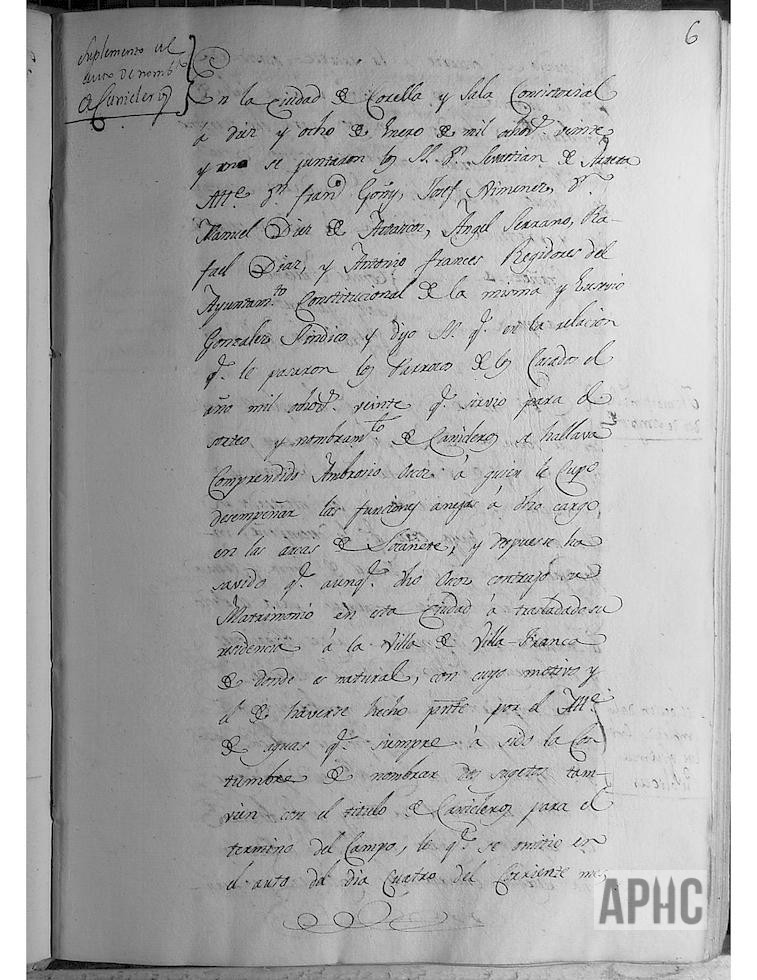 6
Suplemento al
auto de nomb.to
de Cuniclero
En la Ciudad de Corella y Sala Consistorial
á diez y ocho de Enero de mil ochot.s veinte
y uno se juntaron los SS. D.n Sevastian de
Alt.e D.n Fran.co Goñy, Josef Ximenez, D.n
Manuel Diaz de Aarcos, Angel Serrano, Ra-
fael Diaz, y Antonio frances Regidores del
Ayuntam.to Constitucional de la misma y Eusevio
Gonzalez Sindico y dijo SS. q.e en la relacion
q.e le pasaron los Parrocos de los Casados el
año mil ochot.s veinte q.e sirvio para el
sorteo y nombram.to de Cunicleros se hallava
Comprendido Ambrosio á quien le Cupo
desempeñar las funciones anejas á dho cargo,
en las arcas de y despues se ha
savido q.e aunq.e dho contrajó su
Matrimonio en esta Ciudad á trasladado su
residencia á la Villa de Villa-Franca
de donde es natural, con cuyo motivo y
el de haverse hecho pnte por el Alt.e
de aguas q.e siempre á sido la Cos
tumbre de nombrar dos sugetos tam-
vien con el titulo de Cunicleros para el
termino del Campo, lo q.e se omitio en
el auto del dia Cuatro del Corriente mes
APHC